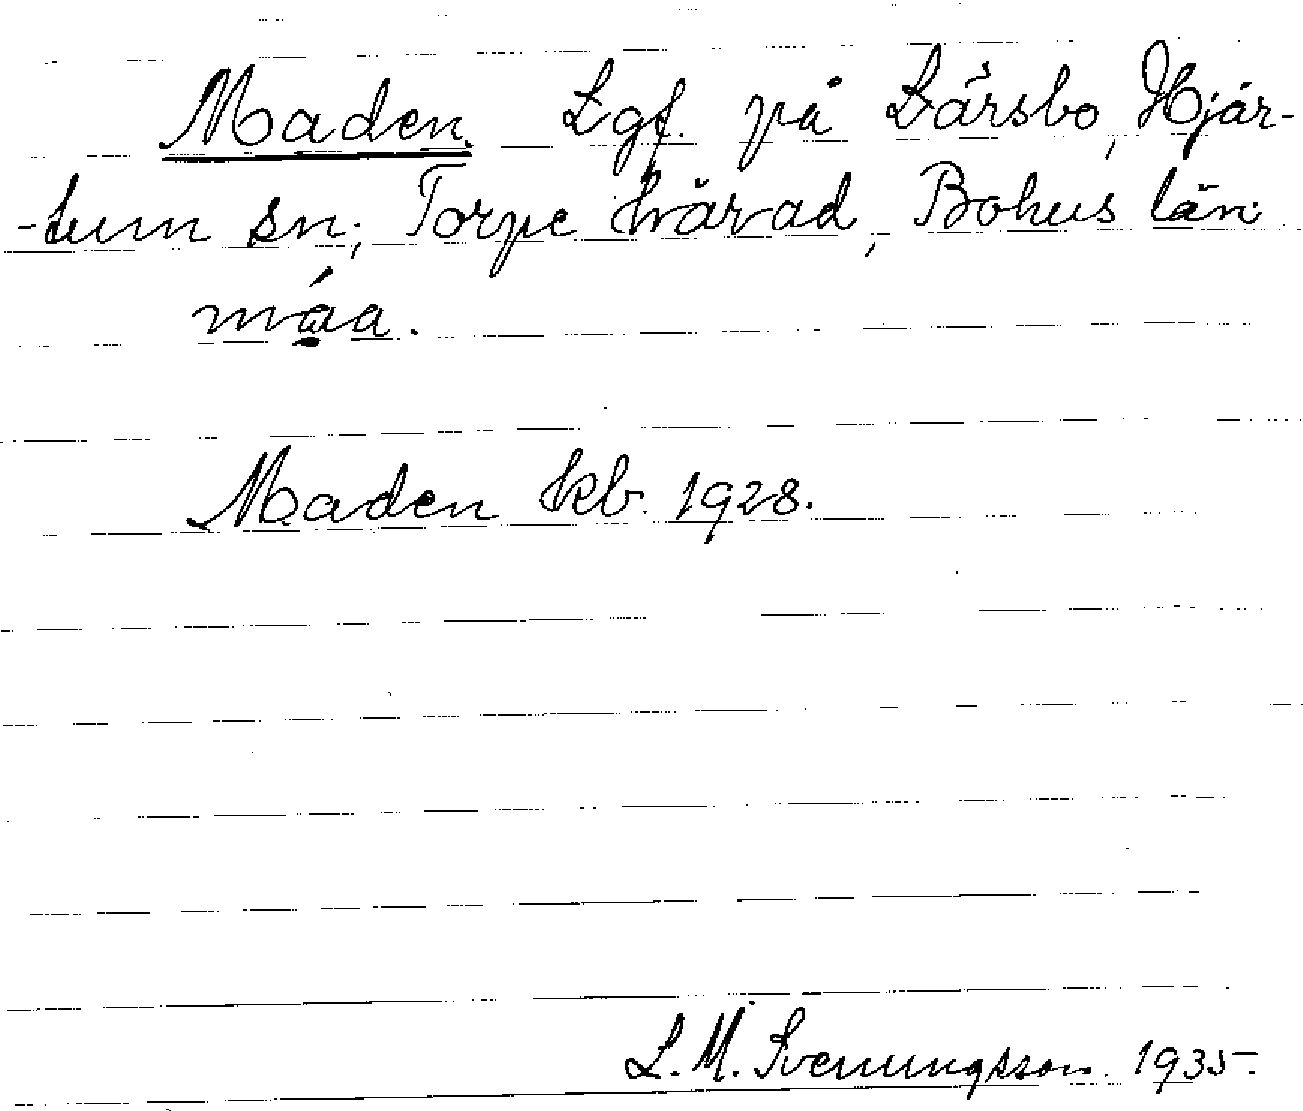 Maden Lgf. på Lärsbo, Hjär-
-tum sn, Torpe härad, Bohus län
måa.
Maden kb. 1928.
L. M. Svenungsson. 1935.